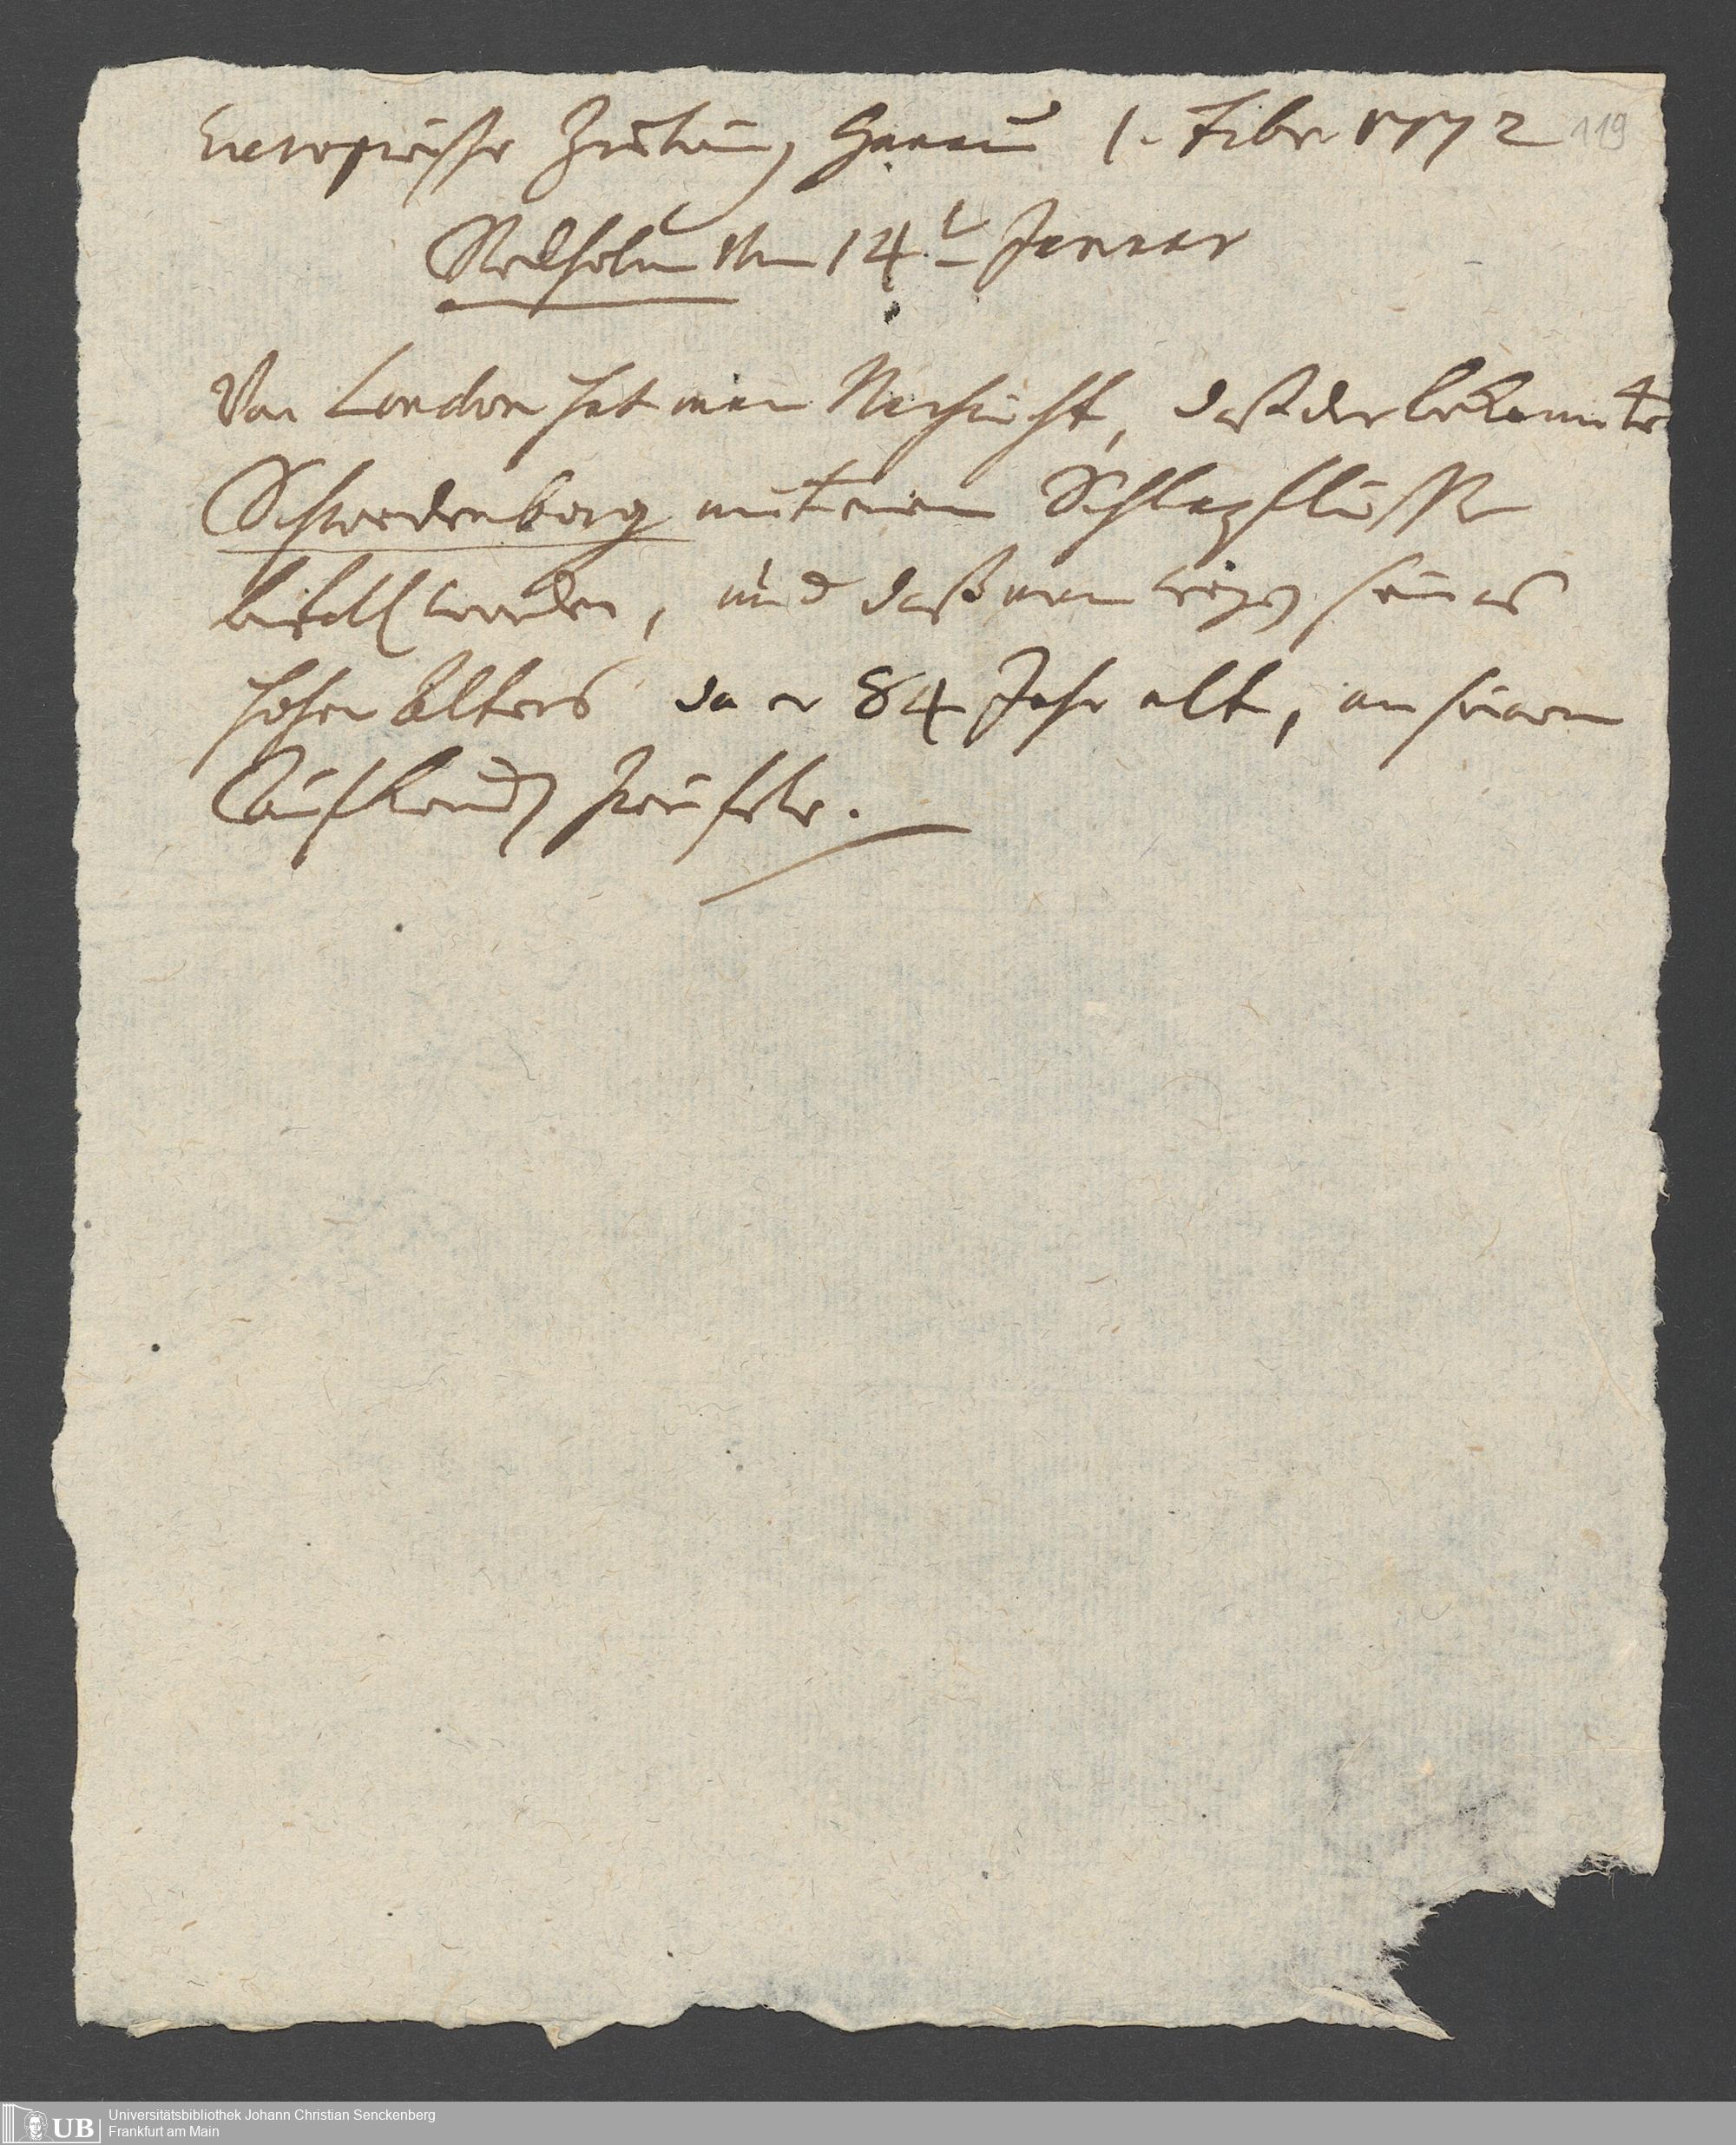 Europeische Zeitung Hanau 1. Febr 1772 119
Stockholm den 14t Januar
Von London hat man Nachricht, daß der bekannte
Schwedenborg mit einem Schlagflusse
befallen worden, und daß man wegen seines
hohen Alters da er 84 Jahr alt, an seinem
Aufkommen zweifele.
UB Universitätsbibliothek Johann Christian Senckenberg
Frankfurt am Main